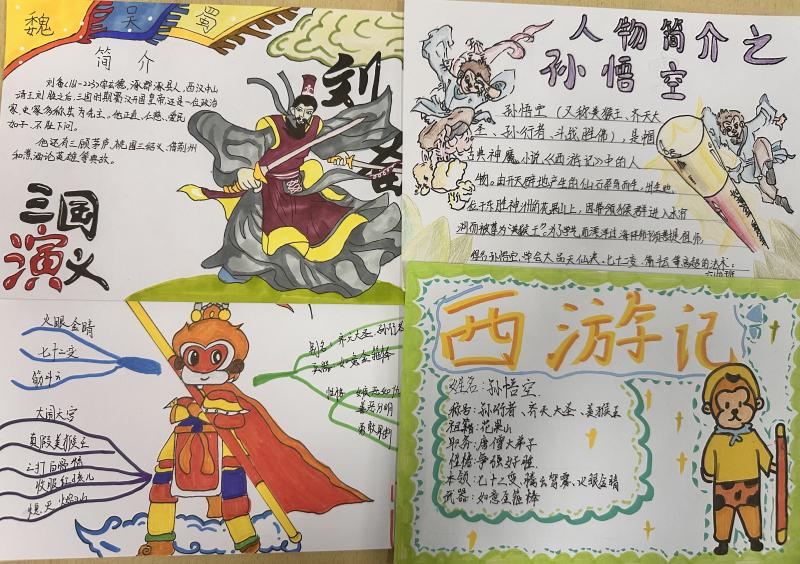 魏 吴 蜀
简 介
刘备(161-223)字玄德，涿郡涿县人，西汉中山
靖王刘胜之后，三国时期蜀汉开国皇帝，还是一位政治
家，史家多称其为先主。他正直、仁慈、爱民
如子、不耻下问。
他还有三顾茅庐、桃园三结义、借荆州
和煮酒论英雄等典故。
刘
备
三国
演义
人物简介之
孙悟空
孙悟空（又称美猴王、齐天大
圣、孙行者、斗战胜佛），是中国
古典神魔小说《西游记》中的人
物。由开天辟地产生的仙石孕育而生，出生地
位于东胜神州的花果山上，因带领猴群进入水帘
洞而被尊为“美猴王”。为了学艺而漂洋过海拜师于须菩提祖师，
得名孙悟空，学会大品天仙诀、七十二变、筋斗云等高超的法术。
火眼金睛
七十二变
筋斗云
大闹天宫
真假美猴王
三打白骨精
收服红孩儿
熄灭火焰山
别名：齐天大圣、孙行者
武器：如意金箍棒
性格：嫉恶如仇
善恶分明
勇敢
西游记
姓名：孙悟空
称号：孙行者、齐天大圣、美猴王
祖籍：花果山
职务：唐僧大弟子
性格：争强好胜
本领：七十二变、腾云驾雾、火眼金睛
武器：如意金箍棒